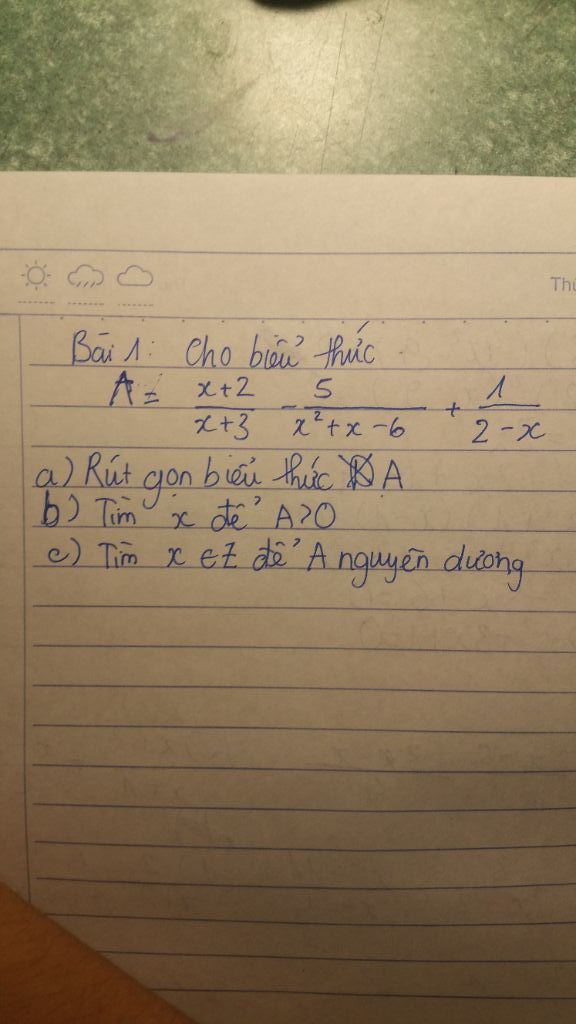 Thứ
Bài 1: Cho biểu thức
A = \frac{x+2}{x+3} - \frac{5}{x^2+x-6} + \frac{1}{2-x}
a) Rút gọn biểu thức A
b) Tìm x để A>0
c) Tìm x ∈ Z để A nguyên dương